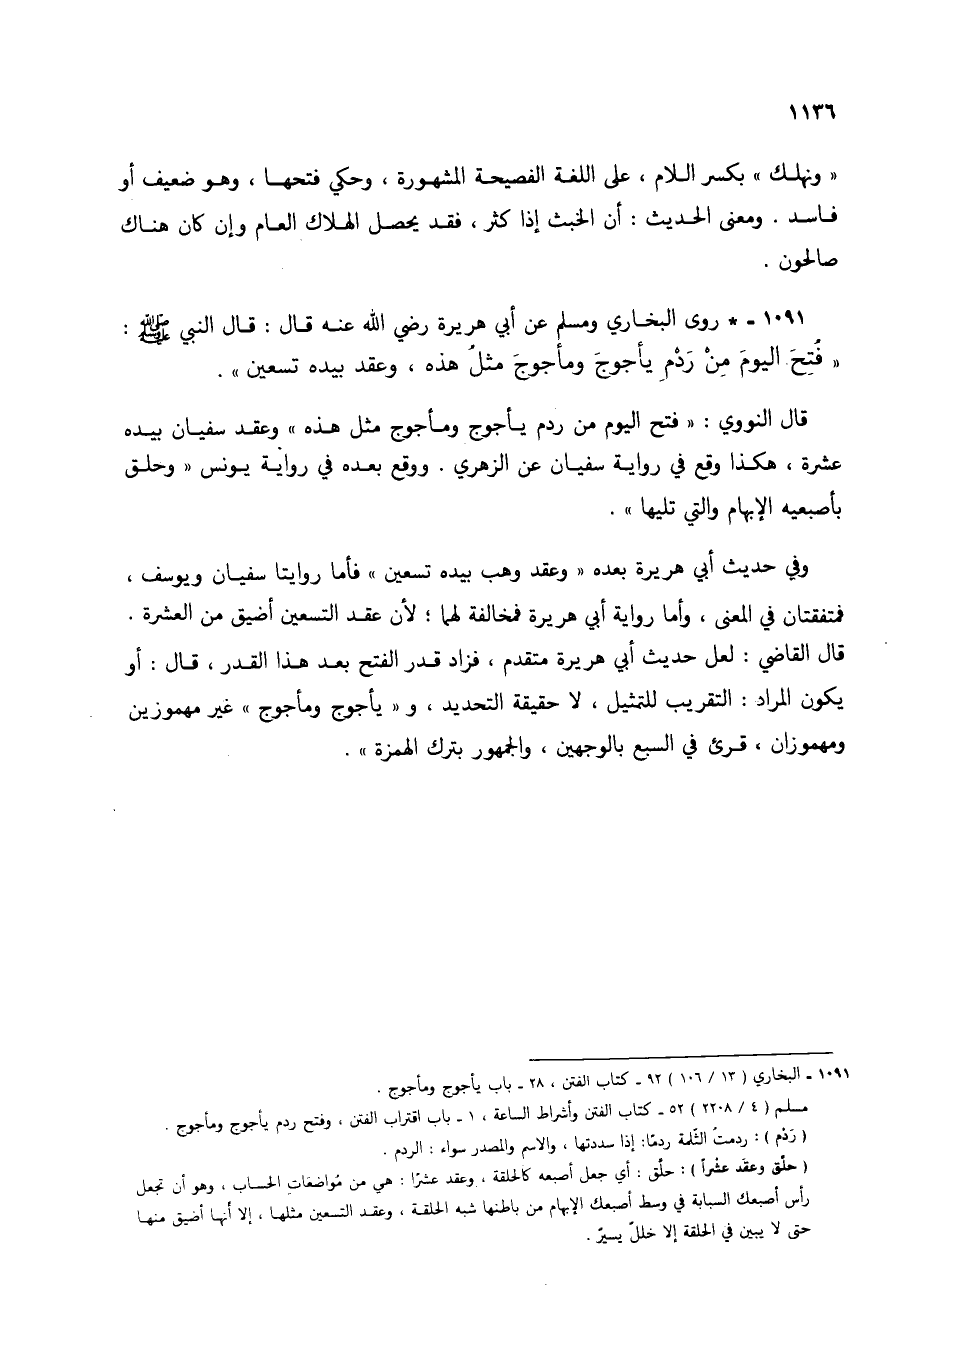 ١١٣٦
« ونهلك » بكسر اللام ، على اللغة الفصيحة المشهورة ، وحكي فتحها ، وهو ضعيف أو
فاسد . ومعنى الحديث : أن الخبث إذا كثر ، فقد يحصل الهلاك العام وإن كان هناك
صالحون .
١٠٩١ - * روى البخاري ومسلم عن أبي هريرة رضي الله عنه قال : قال النبي ﷺ :
« فُتِحَ اليومَ مِنْ رَدْمِ يأجوجَ ومأجوجَ مثلُ هذه ، وعقد بيده تسعين » .
قال النووي : « فتح اليوم من ردم يأجوج ومأجوج مثل هذه » وعقد سفيان بيده
عشرة ، هكذا وقع في رواية سفيان عن الزهري . ووقع بعده في رواية يونس « وحلق
بأصبعيه الإبهام والتي تليها » .
وفي حديث أبي هريرة بعده « وعقد وهب بيده تسعين » فأما روايتا سفيان ويوسف ،
فمتفقتان في المعنى ، وأما رواية أبي هريرة فمخالفة لهما ؛ لأن عقد التسعين أضيق من العشرة .
قال القاضي : لعل حديث أبي هريرة متقدم ، فزاد قدر الفتح بعد هذا القدر ، قال : أو
يكون المراد : التقريب للتمثيل ، لا حقيقة التحديد ، و « يأجوج ومأجوج » غير مهموزين
ومهموزان ، قرئ في السبع بالوجهين ، والجمهور بترك الهمزة » .
١٠٩١ - البخاري ( ١٣ / ١٠٦ ) ٩٢ - كتاب الفتن ، ٢٨ - باب يأجوج ومأجوج .
مسلم ( ٤ / ٢٢٠٨ ) ٥٢ - كتاب الفتن وأشراط الساعة ، ١ - باب اقتراب الفتن ، وفتح ردم يأجوج ومأجوج .
( رَدْم ) : ردمتُ الثّلمة ردمًا: إذا سددتها ، والاسم والمصدر سواء : الردم .
( حلّق وعقَد عشْراً ) : حلّق : أي جعل أصبعه كالحلقة ، وعقد عشرًا : هي من مُواضعَاتِ الحساب ، وهو أن تجعل
رأس أصبعك السبابة في وسط أصبعك الإبهام من باطنها شبه الحلقة ، وعقد التسعين مثلها ، إلا أنها أضيق منها
حتى لا يبين في الحلقة إلا خللٌ يسيرٌ .